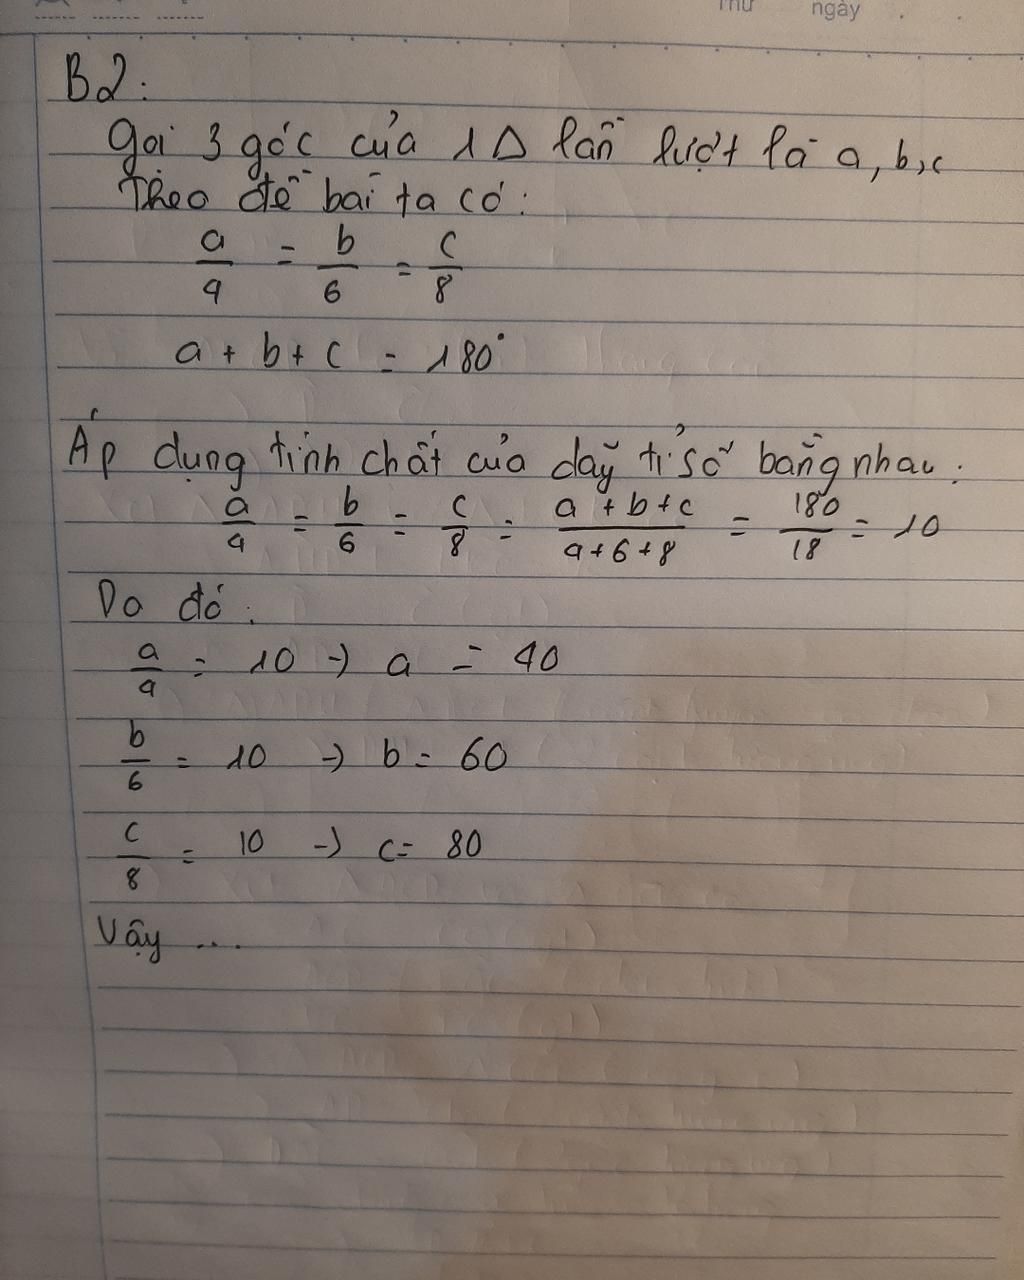 Thứ ngày
B2:
Gọi 3 góc của 1 Δ lần lượt là a, b, c
Theo đề bài ta có:
a/4 = b/6 = c/8
a + b + c = 180°
Áp dụng tính chất của dãy tỉ số bằng nhau:
a/4 = b/6 = c/8 = (a + b + c)/(4 + 6 + 8) = 180/18 = 10
Do đó:
a/4 = 10 → a = 40
b/6 = 10 → b = 60
c/8 = 10 → c = 80
Vậy ....